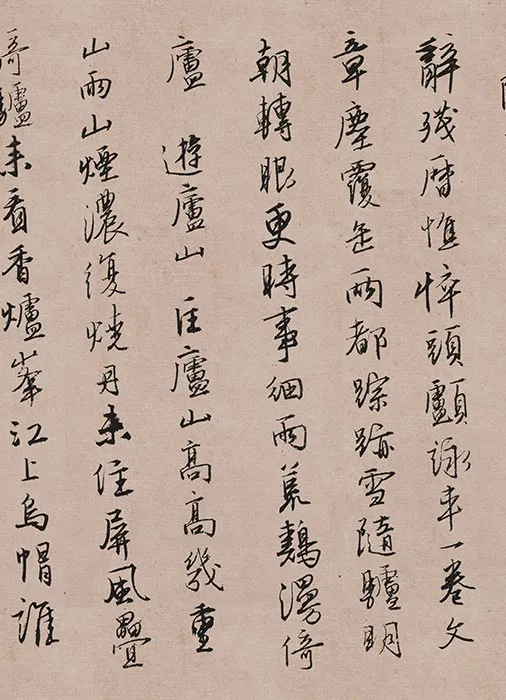 辭殘曆憔悴頭顱詠一卷文
章塵覆缶兩都踪跡雪隨驢明
朝轉眼更時事細雨荒鷄漫倚
廬 遊廬山 匡廬山高高幾重
山雨山煙濃復燒丹未住屏風疊
騎驢未看香爐峯江上烏帽誰